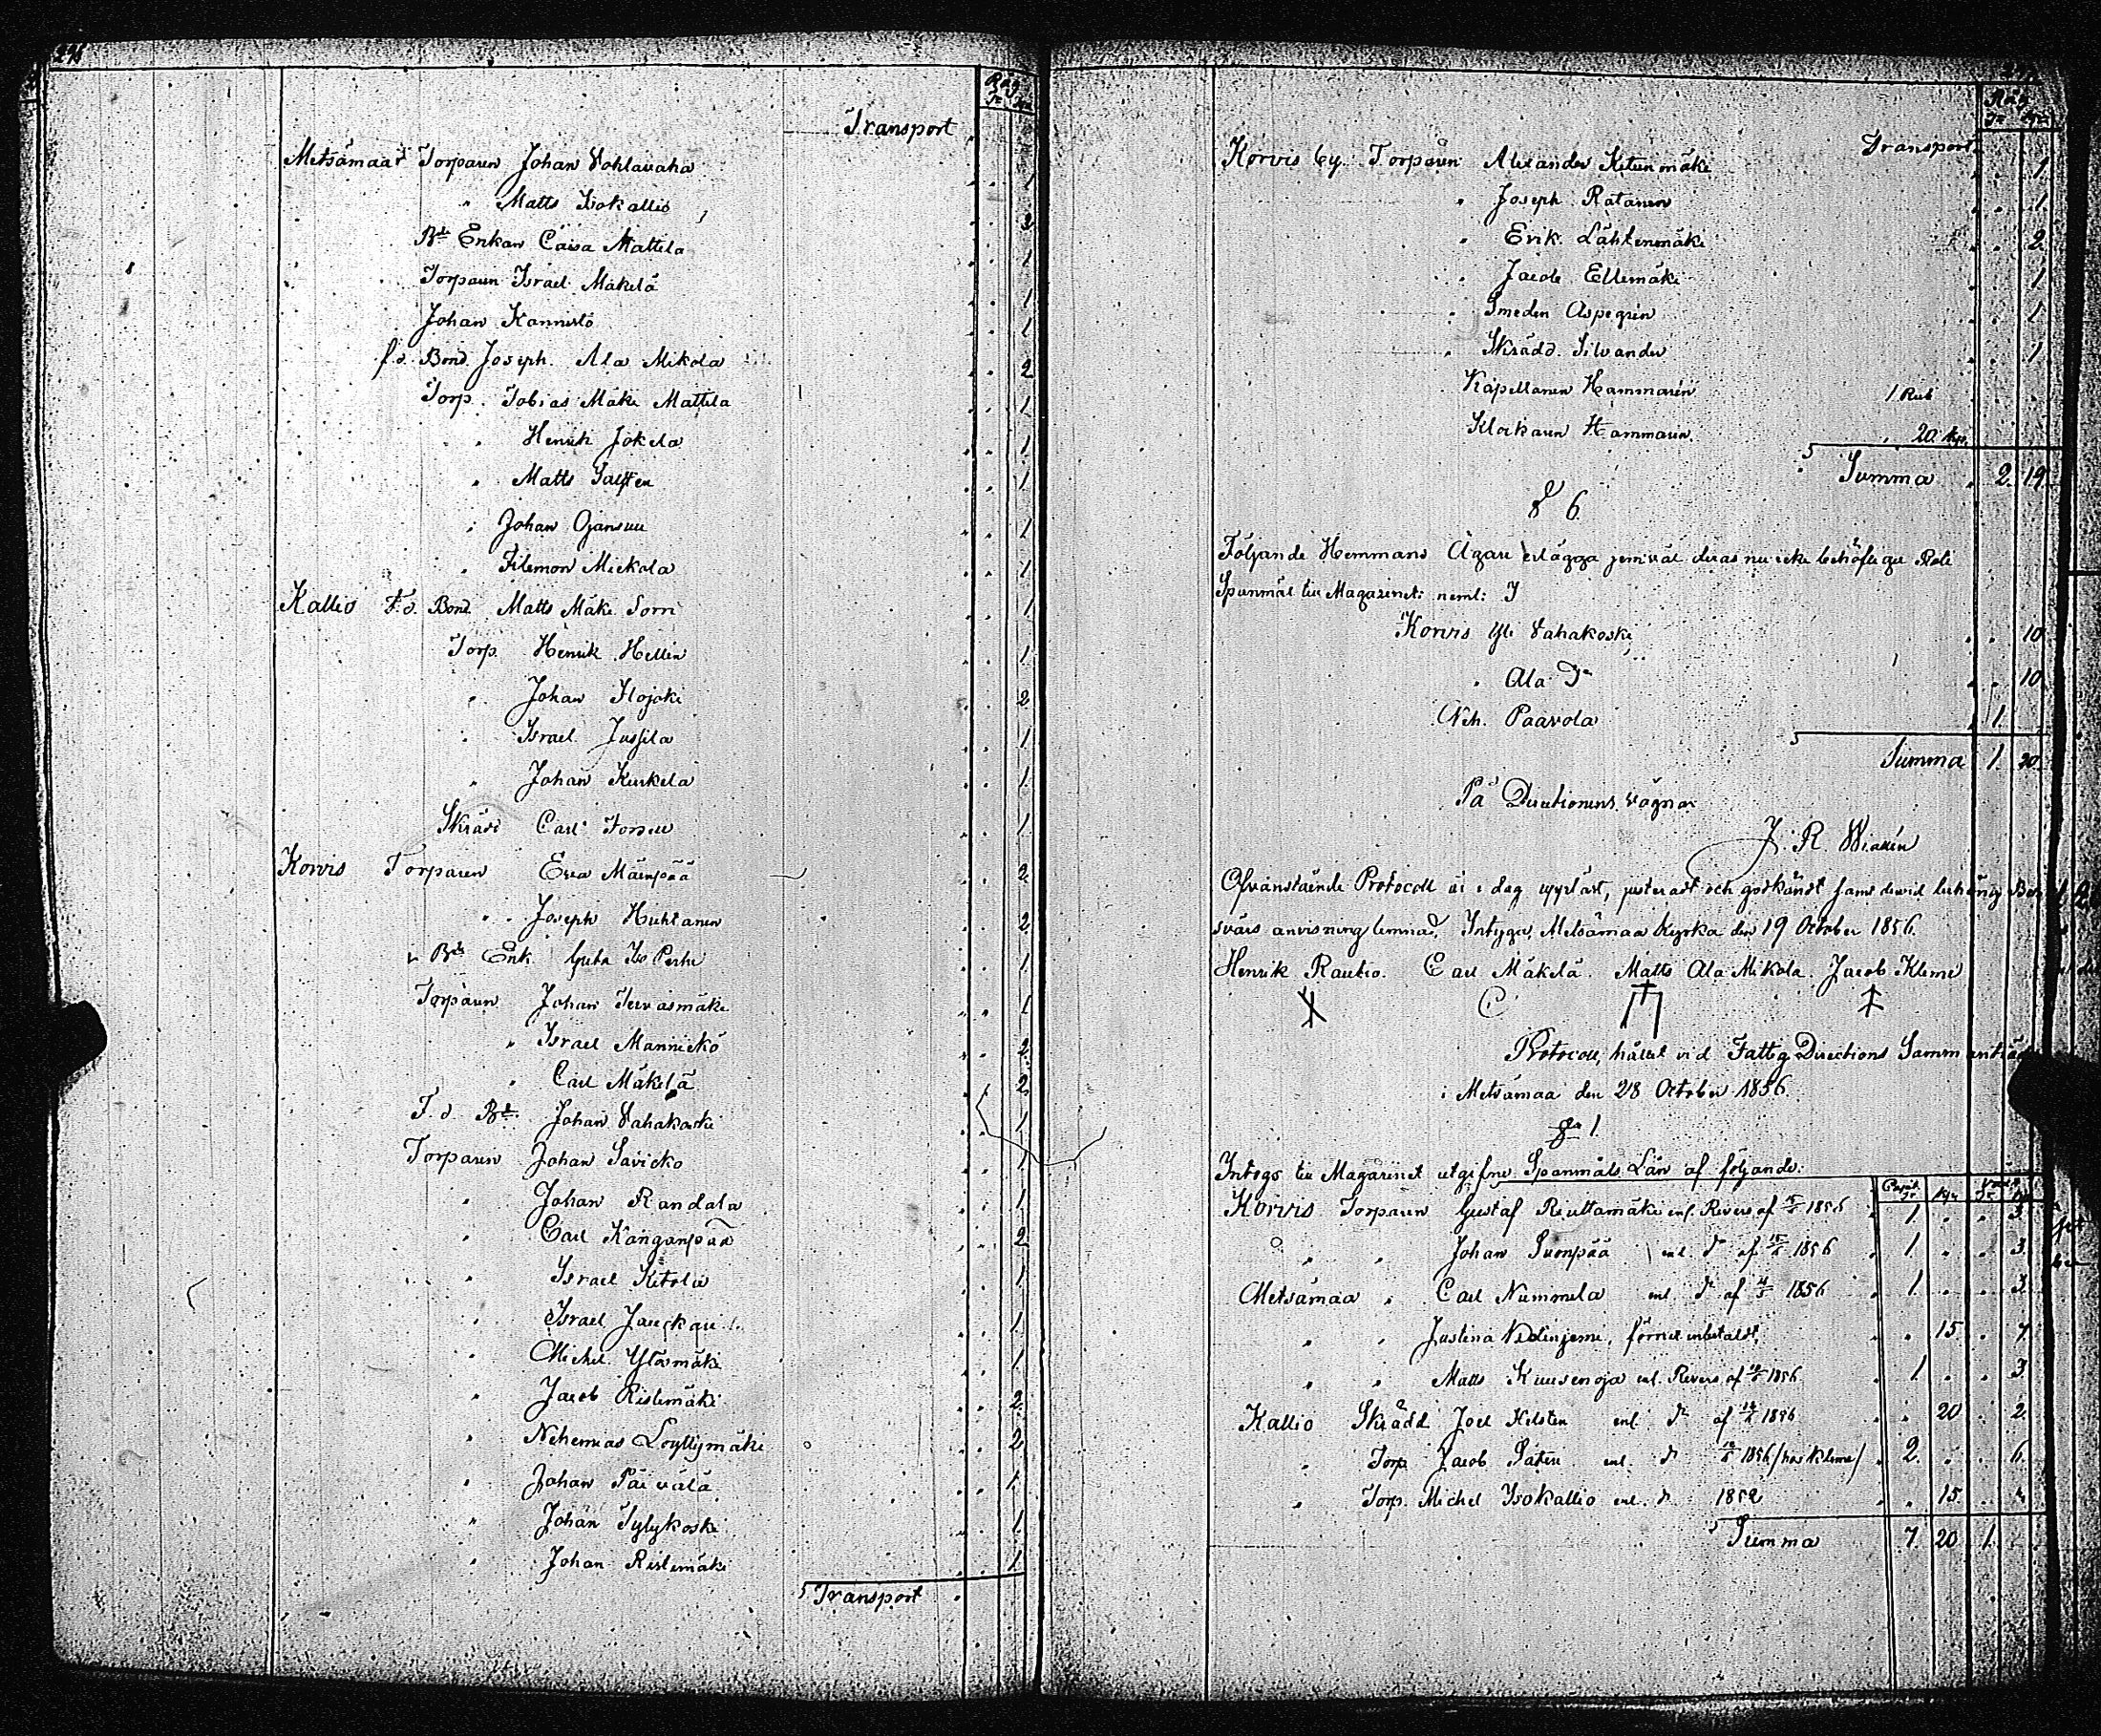 Råg
Tr Kr
Transport
Metsämaa Torparen Johan Vohlavaha 1
" Matts Isokallio 3
Bde Enkan Caisa Mattila 1
Torparen Israel Mäkelä 1
Johan Kannisto 1
f.d. Bond Joseph Ala Mikola 2
Torp. Tobias Mäki Mattila 1
" Henrik Jokela 1
" Matts 1
" Johan Ojansuu 1
" Filemon Mickola 1
Kallio F.d. Bond. Matts Mäki Sorri 1
Torp. Henrik Hellen 1
" Johan Ilojoki 2
" Israel Jussila 1
" Johan Kurkela 1
Skrädd Carl 1
Korvis Torparen Eva Mäenpää 2
" Joseph Huhtanen 2
" Bde Enk. Iso Perhe 1
Torparen Johan Tervasmäki 1
" Israel Mannickö 2
" Carl Mäkelä 2
F.d. Bd. Johan Vahakoski 1
Torparen Johan Savicko 1
" Johan Randala 1
" Carl Kanganpää 2
" Israel Ketola 1
" Israel 1
" Michel Ylösmäki 1
" Jacob Ristemäki 2
" Nehemias Löyttymäki 2
" Johan Päivälä 1
" Johan Tylykoski 1
" Johan Ristemäki 1
Transport
Råg
Tr Kpr
Transport
Korvis by. Torparen Alexander Ketunmäki 1
" Joseph Ratanen 1
" Erik Lähtenmäki 2
" Jacob Ellemäki 1
" Smeden Aspegrén 1
" Skrädd. Silvander 1
Kapellanen Hammarén 1 Rub
Klockaren Hammarén 20 kp.
Summa 2 19
§ 6.
Följande Hemmans Ägare erlägga jemväl deras nu icke behöflige
Spanmål till Magazinet: neml:
Korvis Yli Vahakoski 10
" Ala Do 10
Neh. Paavola 1
Summa 1 20
På Directionens vägnar
J. R. Wialén
Ofvanstående Protocoll är i dag uppläst, justeradt och godkändt samt
anvisning lemnad, Intyga, Metsämaa kyrka den 19 October 1856.
Henrik Rautio. Carl Mäkelä. Matts Ala Mikola. Jacob Klemi
Protocoll, hållet vid Fattig Directions
i Metsämaa den 28 October 1856.
§ 1.
Intogs till Magazinet utgifne Spanmåls Lån af följande:
Korvis Torparen Gustaf Riuttamäki enl. Revers af 1856 1 3
" " Johan Suonpää enl. Do af 15/5 1856 1 3
Metsämaa " Carl Nummela enl. Do af 1856 1 3
" " Justina förut inbetaldt. 15 7
" " Matts Kuusenoja enl. Revers af 1856 1 3
Kallio Skrädd Joel Kelsten enl. Do af 1856 20 2
" Torp Jacob Säteri enl. Do 1856 /hos Klemi/ 2 6
" Torp. Michel Isokallio enl. Do 1852 15
Summa 7 20 1